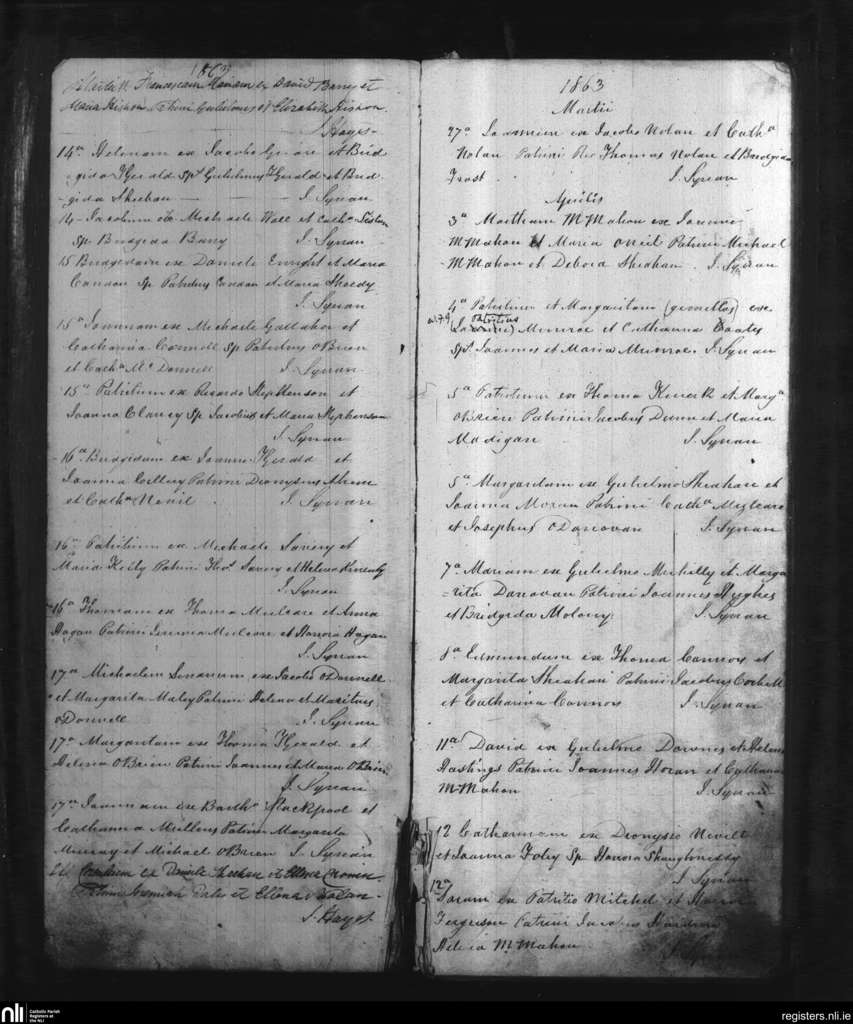 1863
Franciscam Mariam ex David Barry et
Maria Hishon Patrini Gulielmus et Elizabeth Hishon
J. Hayes
14a Helenam ex Jacobo et Brid
gida FGerald Sps Gulielmus FGerald et Brid
gida Sheehan J. Synan
14 Jacobum ex Michaele Wall et Catha
Sp Bridgida Barry J. Synan
15 Bridgidam ex Daniele Enright et Maria
Condon Sp Patritius Condon et Maria Sheedy
J. Synan
15a Joannam ex Michaele Gallahor et
Catharina Connell Sp Patritius OBrien
et Catha Mc Donnell J. Synan
15a Patritium ex Ricardo Stephenson et
Joanna Clancy Sp Jacobus et Maria Stephenson
J. Synan
16a Bridgidam ex Joanne FGerald et
Joanna Patrini Dionysius Ahern
et Catha Nevil J. Synan
16a Patritium ex Michaele Lavery et
Maria Kiely Patrini Thos Lavery et Helena
J. Synan
16a Thomam ex Thoma Mulcare et Anna
Hogan Patrini Jeremia Mulcare et Honora Hogan
J. Synan
17a Michaelem ex Jacobo ODonnell
et Margarita Maley Patrini Helena et
oDonnell J. Synan
17a Margaritam ex Thoma FGerald et
Helena OBrien Patrini Joannes et Maria OBrien
J. Synan
17a Joannam ex Barths Blackpool et
Catharina Mullins Patrini Margarita
Murray et Michael OBrien J. Synan
ex Daniele Meehan et Ellena Cronen
Patrini Jeremiah Daly et Ellena
J. Hayes
1863
Martii
27a Joannem ex Jacobo Nolan et Catha
Nolan Patrini Rev Thomas Nolan et Bridgida
Frost J. Synan
Aprilis
3a Martham McMahon ex Joanne
McMahon et Maria oNeil Patrini Michael
McMahon et Debora Sheahan J. Synan
4a Patritium et Margaritam (gemellos) ex
Patritius
(Joanne) Munroe et Catharina Coates
Sps Joannes et Maria Munroe J. Synan
5a Patritium ex Thoma Kinerk et Marga
OBrien Patrini Jacobus Dunn et Maria
Madigan J. Synan
5a Margaritam ex Gulielmo Sheahan et
Joanna Moran Patrini Catha Mulcare
et Josephus ODonovan J. Synan
7a Mariam ex Gulielmo Mulcilly et Marga
=rita Donovan Patrini Joannes Hughes
et Bridgida Molony J. Synan
8a Edmundum ex Thoma Connors et
Margarita Sheahan Patrini Jacobus Corbett
et Catharina Connors J. Synan
11a David ex Gulielmo Downes et Helena
Hastings Patrini Joannes Horan et Catharina
McMahon J. Synan
12 Catharinam ex Dionysio Nevill
et Joanna Foley Sp Honora Shaughnessy
J. Synan
12a
ex Patritio Mitchel et
Ferguson Patrini Jacobus
Helena McMahon
J. Synan
nli
Catholic Parish
Registers at
the NLI
registers.nli.ie